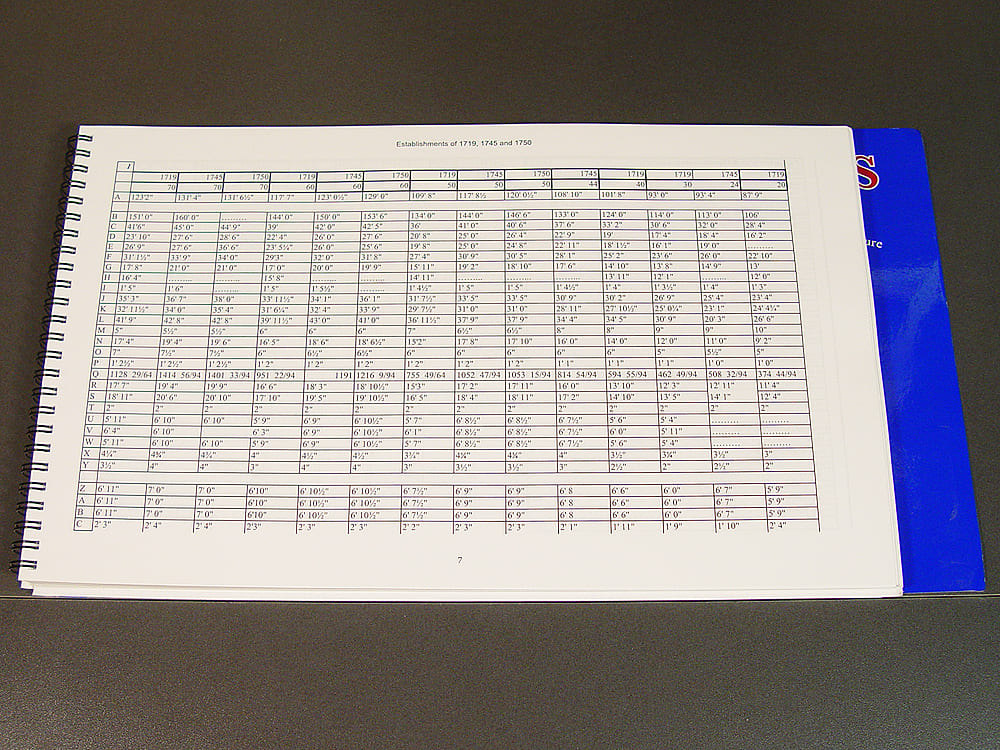 Establishments of 1719, 1745 and 1750
1
1719 1745 1750 1719 1745 1750 1719 1745 1750 1745 1719 1719 1745 1719
70 70 70 60 60 60 50 50 50 44 40 30 24 20
A 123'2" 131' 4" 131' 6½" 117' 7" 123' 0½" 129' 0" 109' 8" 117' 8½ 120' 0½" 108' 10" 101' 8" 93' 0" 93' 4" 87' 9"
B 151' 0" 160' 0" ......... 144' 0" 150' 0" 153' 6" 134' 0" 144' 0" 146' 6" 133' 0" 124' 0" 114' 0" 113' 0" 106'
C 41'6" 45' 0" 44' 9" 39' 42' 0" 42' 5" 36' 41' 0" 40' 6" 37' 6" 33' 2" 30' 6" 32' 0" 28' 4"
D 23' 10" 27' 6" 28' 6" 22' 4" 26' 0" 27' 6" 20' 8" 25' 0" 26' 4" 22' 9" 19' 17' 4" 18' 4" 16' 2"
E 26' 9" 27' 6" 36' 6" 23' 5¼" 26' 0" 25' 6" 19' 8" 25' 0" 24' 8" 22' 11" 18' 1½" 16' 1" 19' 0" .........
F 31' 1½" 33' 9" 34' 0" 29'3" 32' 0" 31' 8" 27' 4" 30' 9" 30' 5" 28' 1" 25' 2" 23' 6" 26' 0" 22' 10"
G 17' 8" 21' 0" 21' 0" 17' 0" 20' 0" 19' 9" 15' 11" 19' 2" 18' 10" 17' 6" 14' 10" 13' 8" 14' 9" 13'
H 16' 4" ......... ......... 15' 8" ......... ......... 14' 11" ......... ......... ......... 13' 11" 12' 1" ......... 12' 0"
I 1' 5" 1' 6" ......... 1' 5" 1' 5½" ......... 1' 4½" 1' 5" 1' 5" 1' 4½" 1' 4" 1' 3½" 1' 4" 1' 3"
J 35' 3" 36' 7" 38' 0" 33' 11½" 34' 1" 36' 1" 31' 7½" 33' 5" 33' 5" 30' 9" 30' 2" 26' 9" 25' 4" 23' 4"
K 32' 11½" 34' 0" 35' 4" 31' 6¼" 32' 4" 33' 9" 29' 7½" 31' 0" 31' 0" 28' 11" 27' 10½" 25' 0¼" 23' 1" 24' 4¼"
L 41' 9" 42' 8" 42' 8" 39' 11½" 43' 0" 41' 0" 36' 11½" 37' 9" 37' 9" 34' 4" 34' 5" 30' 9" 20' 3" 26' 6"
M 5" 5½" 5½" 6" 6" 6" 7" 6½" 6½" 8" 8" 9" 9" 10"
N 17' 4" 19' 4" 19' 6" 16' 5" 18' 6" 18' 6½" 15'2" 17' 8" 17' 10" 16' 0" 14' 0" 12' 0" 11' 0" 9' 2"
O 7" 7½" 7½" 6" 6½" 6½" 6" 6" 6" 6" 6" 5" 5½" 5"
P 1' 2½" 1' 2½" 1' 2½" 1' 2" 1' 2" 1' 2" 1' 2" 1' 2" 1' 2" 1' 1" 1' 1" 1' 0" 1' 1" 1' 0"
Q 1128 29/64 1414 56/94 1401 33/94 951 22/94 1191 1216 9/94 755 49/64 1052 47/94 1053 15/94 814 54/94 594 55/94 462 49/94 508 32/94 374 44/94
R 17' 7" 19' 4" 19' 9" 16' 6" 18' 3" 18' 10½" 15'3" 17' 2" 17' 11" 16' 0" 13' 10" 12' 3" 12' 11" 11' 4"
S 18' 11" 20' 6" 20' 10" 17' 10" 19' 5" 19' 10½" 16' 5" 18' 4" 18' 11" 17' 2" 14' 10" 13' 5" 14' 1" 12' 4"
T 2" 2" 2" 2" 2" 2" 2" 2" 2" 2" 2" 2" 2" 2"
U 5' 11" 6' 10" 6' 10" 5' 9" 6' 9" 6' 10½" 5' 7" 6' 8½" 6' 8½" 6' 7½" 5' 6" 5' 4" ......... .........
V 6' 4" 6' 10" 6' 3" 6' 9" 6' 10½" 6' 1" 6' 8½" 6' 8½" 6' 7½" 6' 0" 5' 11" ......... .........
W 5' 11" 6' 10" 6' 10" 5' 9" 6' 9" 6' 10½" 5' 7" 6' 8½" 6' 8½" 6' 7½" 5' 6" 5' 4" ......... .........
X 4¼" 4¾" 4¾" 4" 4½" 4½" 3¾" 4¼" 4¼" 4" 3½" 3¼" 3½" 3"
Y 3½" 4" 4" 3" 4" 4" 3" 3½" 3½" 3" 2½" 2" 2½" 2"
Z 6' 11" 7' 0" 7' 0" 6'10" 6' 10½" 6' 10½" 6' 7½" 6' 9" 6' 9" 6' 8 6' 6" 6' 0" 6' 7" 5' 9"
A 6' 11" 7' 0" 7' 0" 6' 10" 6' 10½" 6' 10½" 6' 7½" 6' 9" 6' 9" 6' 8 6' 6" 6' 0" 6' 7" 5' 9"
B 6' 11" 7' 0" 7' 0" 6'10" 6' 10½" 6' 10½" 6' 7½" 6' 9" 6' 9" 6' 8 6' 6" 6' 0" 6' 7" 5' 9"
C 2' 3" 2' 4" 2' 4" 2'3" 2' 3" 2' 3" 2' 2" 2' 3" 2' 3" 2' 1" 1' 11" 1' 9" 1' 10" 2' 4"
7
S
ure